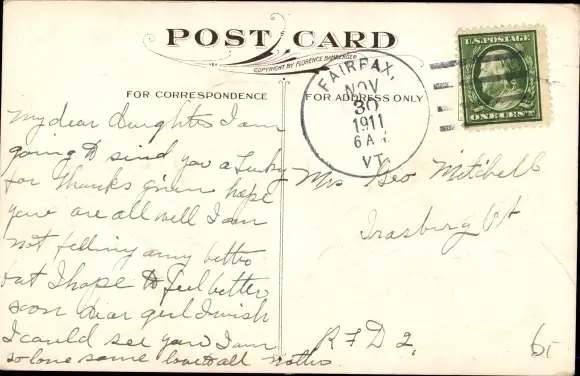 POST CARD
COPYRIGHT BY FLORENCE BAMBERGER
FOR CORRESPONDENCE
FOR ADDRESS ONLY
U.S. POSTAGE
ONE CENT
FAIRFAX,
NOV
30
1911
6 A
VT.
My dear daughter I am
going to send you a Turky
for Thanks given hope
you are all well I am
not felling any better
but I hope to feel better
soon dear girl I wish
I could see you I am
so lone some love to all Mother
Mrs Geo Mitchell
Irasburg Vt
R F D 2,